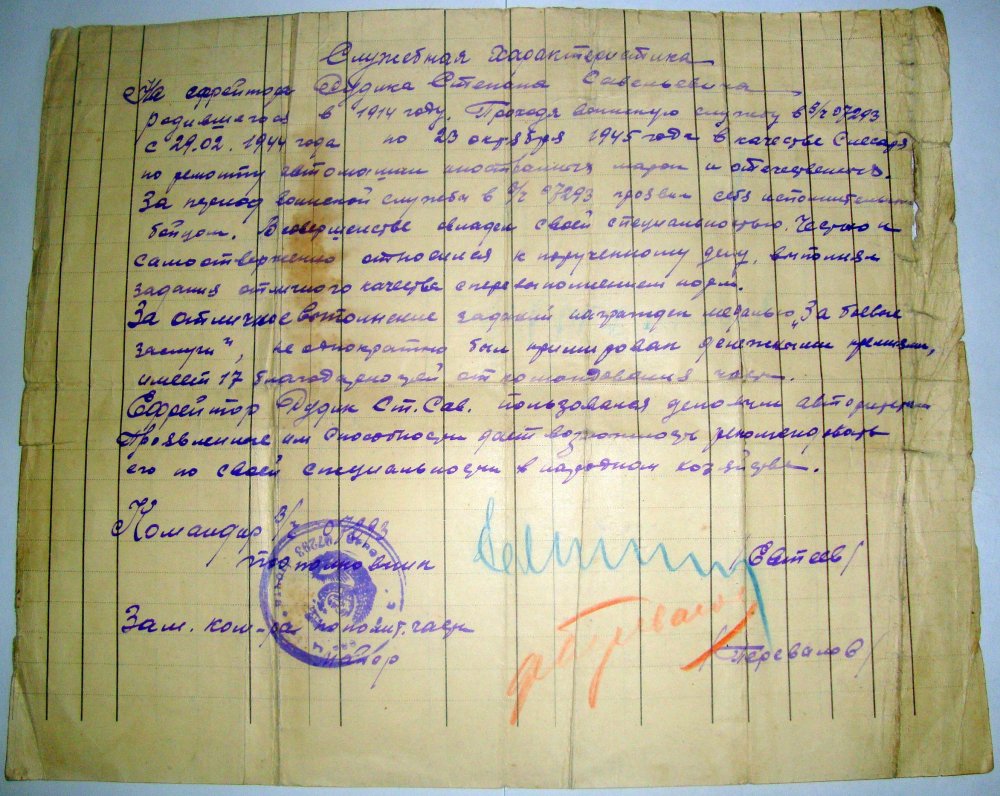 Служебная характеристика
На ефрейтора Дудика Степана Савельевича
родившегося в 1914 году. Проходя воинскую службу в в/ч 07293
с 29.02.1944 года по 23 октября 1945 года в качестве Слесаря
по ремонту автомашин иностранных марок и отечественных.
За период воинской службы в в/ч 07293 проявил себя исполнительным
бойцом. В совершенстве овладел своей специальностью. Честно и
самоотверженно относился к порученному делу, выполняя
задания отличного качества с перевыполнением норм.
За отличное выполнение заданий награжден медалью „За боевые
заслуги", не однократно был премирован денежными премиями,
имеет 17 благодарностей от командования части.
Ефрейтор Дудик Ст. Сав. пользовался деловым авторитетом
Проявленные им способности дает возможность рекомендовать
его по своей специальности в народном хозяйстве.
Командир В/ч 07293
подполковник /Евтеев/
Зам. ком-ра по полит. части
Майор /Перевалов/
07293